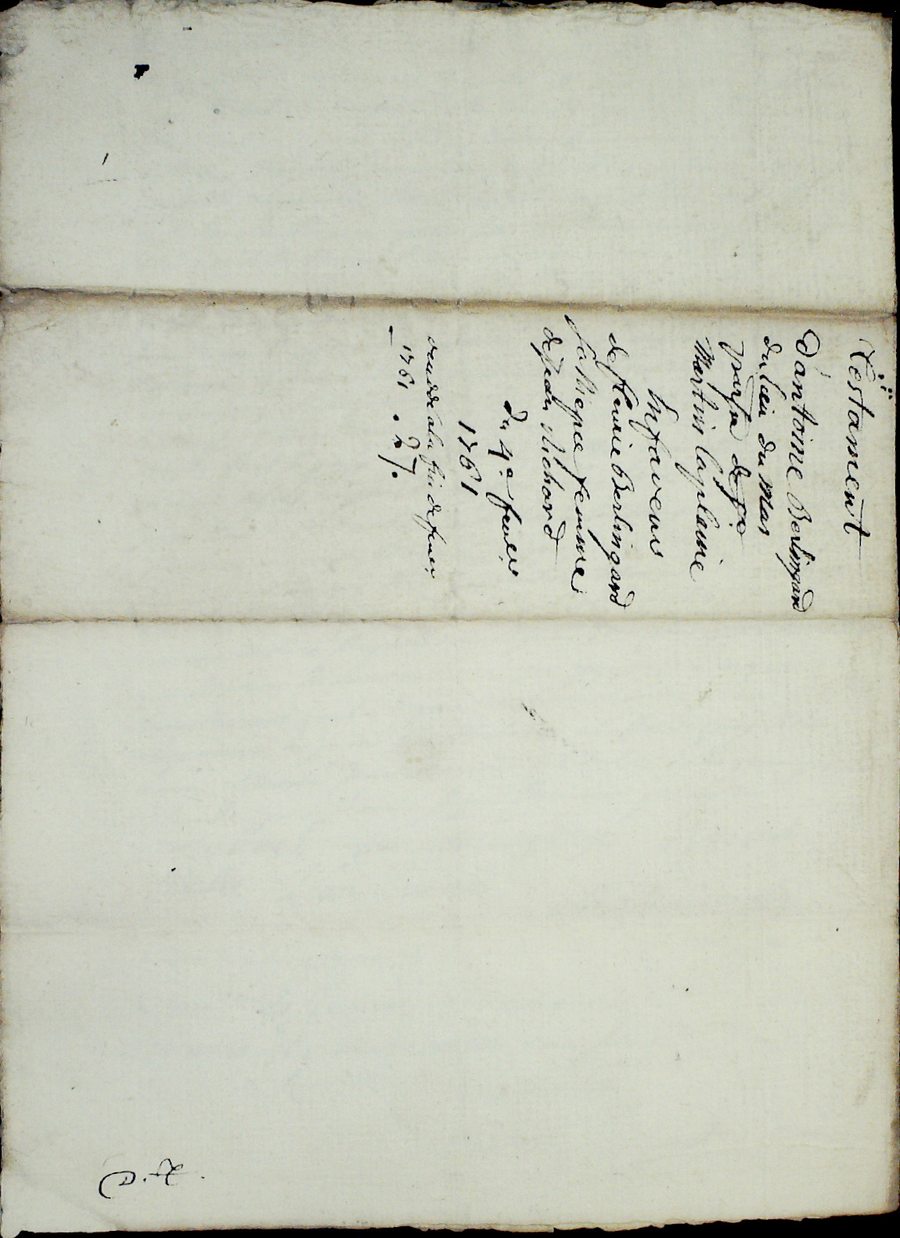 Testament
d'antoine Berlingard
du lieu du Mas
parse de st
Martin laplaine
En faveur
de fleurie Berlingard
sa Niepce femme
de Jean Michard
Du 4e fevrier
1761
de fevrier
1761 . 27.